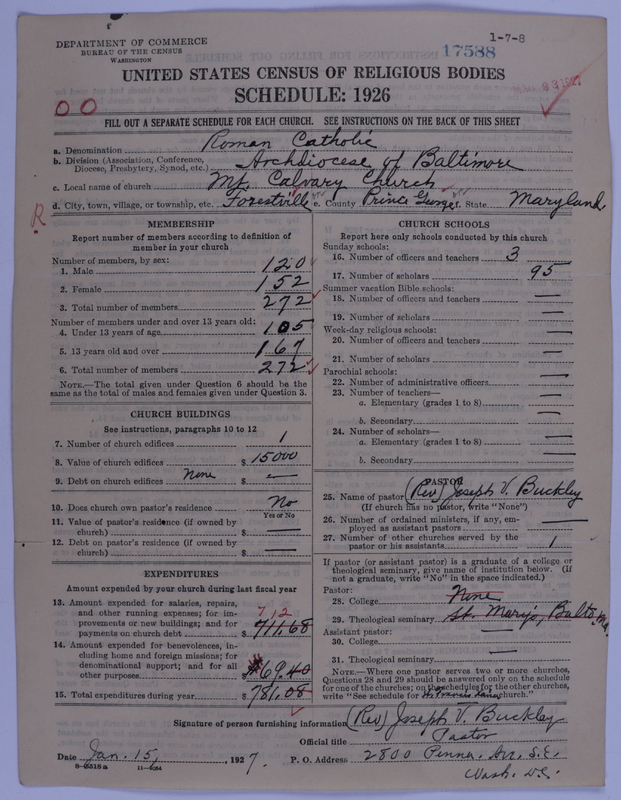 DEPARTMENT OF COMMERCE
BUREAU OF THE CENSUS
WASHINGTON
1-7-8
17588
UNITED STATES CENSUS OF RELIGIOUS BODIES
SCHEDULE: 1926
0 0
FILL OUT A SEPARATE SCHEDULE FOR EACH CHURCH. SEE INSTRUCTIONS ON THE BACK OF THIS SHEET
a. Denomination Roman Catholic
b. Division (Association, Conference, Diocese, Presbytery, Synod, etc.) Archdiocese of Baltimore
c. Local name of church Mt. Calvary Church
d. City, town, village, or township, etc. Forestville e. County Prince George f. State Maryland
R
MEMBERSHIP
Report number of members according to definition of
member in your church
Number of members, by sex:
1. Male 120
2. Female 152
3. Total number of members 272
Number of members under and over 13 years old:
4. Under 13 years of age 105
5. 13 years old and over 167
6. Total number of members 272
NOTE.—The total given under Question 6 should be
same as the total of males and females given under Question 3.
CHURCH BUILDINGS
See instructions, paragraphs 10 to 12
7. Number of church edifices 1
8. Value of church edifices $ 15000
9. Debt on church edifices None $ —
10. Does church own pastor's residence No
Yes or No
11. Value of pastor's residence (if owned by
church) $ —
12. Debt on pastor's residence (if owned by
church) $ —
EXPENDITURES
Amount expended by your church during last fiscal year
13. Amount expended for salaries, repairs,
and other running expenses; for im-
provements or new buildings; and for
payments on church debt $ 711.68
712
14. Amount expended for benevolences, in-
cluding home and foreign missions; for
denominational support; and for all
other purposes $69.40
15. Total expenditures during year $ 781.08
CHURCH SCHOOLS
Report here only schools conducted by this church
Sunday schools:
16. Number of officers and teachers 3
17. Number of scholars 95
Summer vacation Bible schools:
18. Number of officers and teachers —
19. Number of scholars —
Week-day religious schools:
20. Number of officers and teachers —
21. Number of scholars —
Parochial schools:
22. Number of administrative officers —
23. Number of teachers—
a. Elementary (grades 1 to 8) —
b. Secondary —
24. Number of scholars—
a. Elementary (grades 1 to 8) —
b. Secondary —
PASTOR
25. Name of pastor (Rev) Joseph V. Buckley
(If church has no pastor, write "None")
26. Number of ordained ministers, if any, em-
ployed as assistant pastors —
27. Number of other churches served by the
pastor or his assistants 1
If pastor (or assistant pastor) is a graduate of a college or
theological seminary, give name of institution below. (If
not a graduate, write "No" in the space indicated.)
Pastor:
28. College None
29. Theological seminary St. Mary's, Balto. Md.
Assistant pastor:
30. College —
31. Theological seminary —
NOTE.—Where one pastor serves two or more churches,
Questions 28 and 29 should be answered only on the schedule
for one of the churches; on the schedules for the other churches,
write "See schedule for St. Francis Xavier church."
Signature of person furnishing information (Rev) Joseph V. Buckley
Official title Pastor
Date Jan. 15, 1927. P. O. Address 2800 Penna. Av. S.E.
8-5515a 11-9084
Wash. D.C.